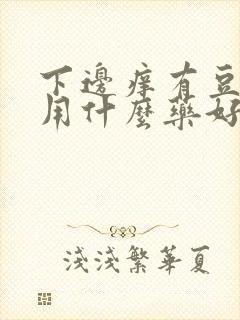 下邊痒有豆
用什麼藥好
淺淺繁華夏